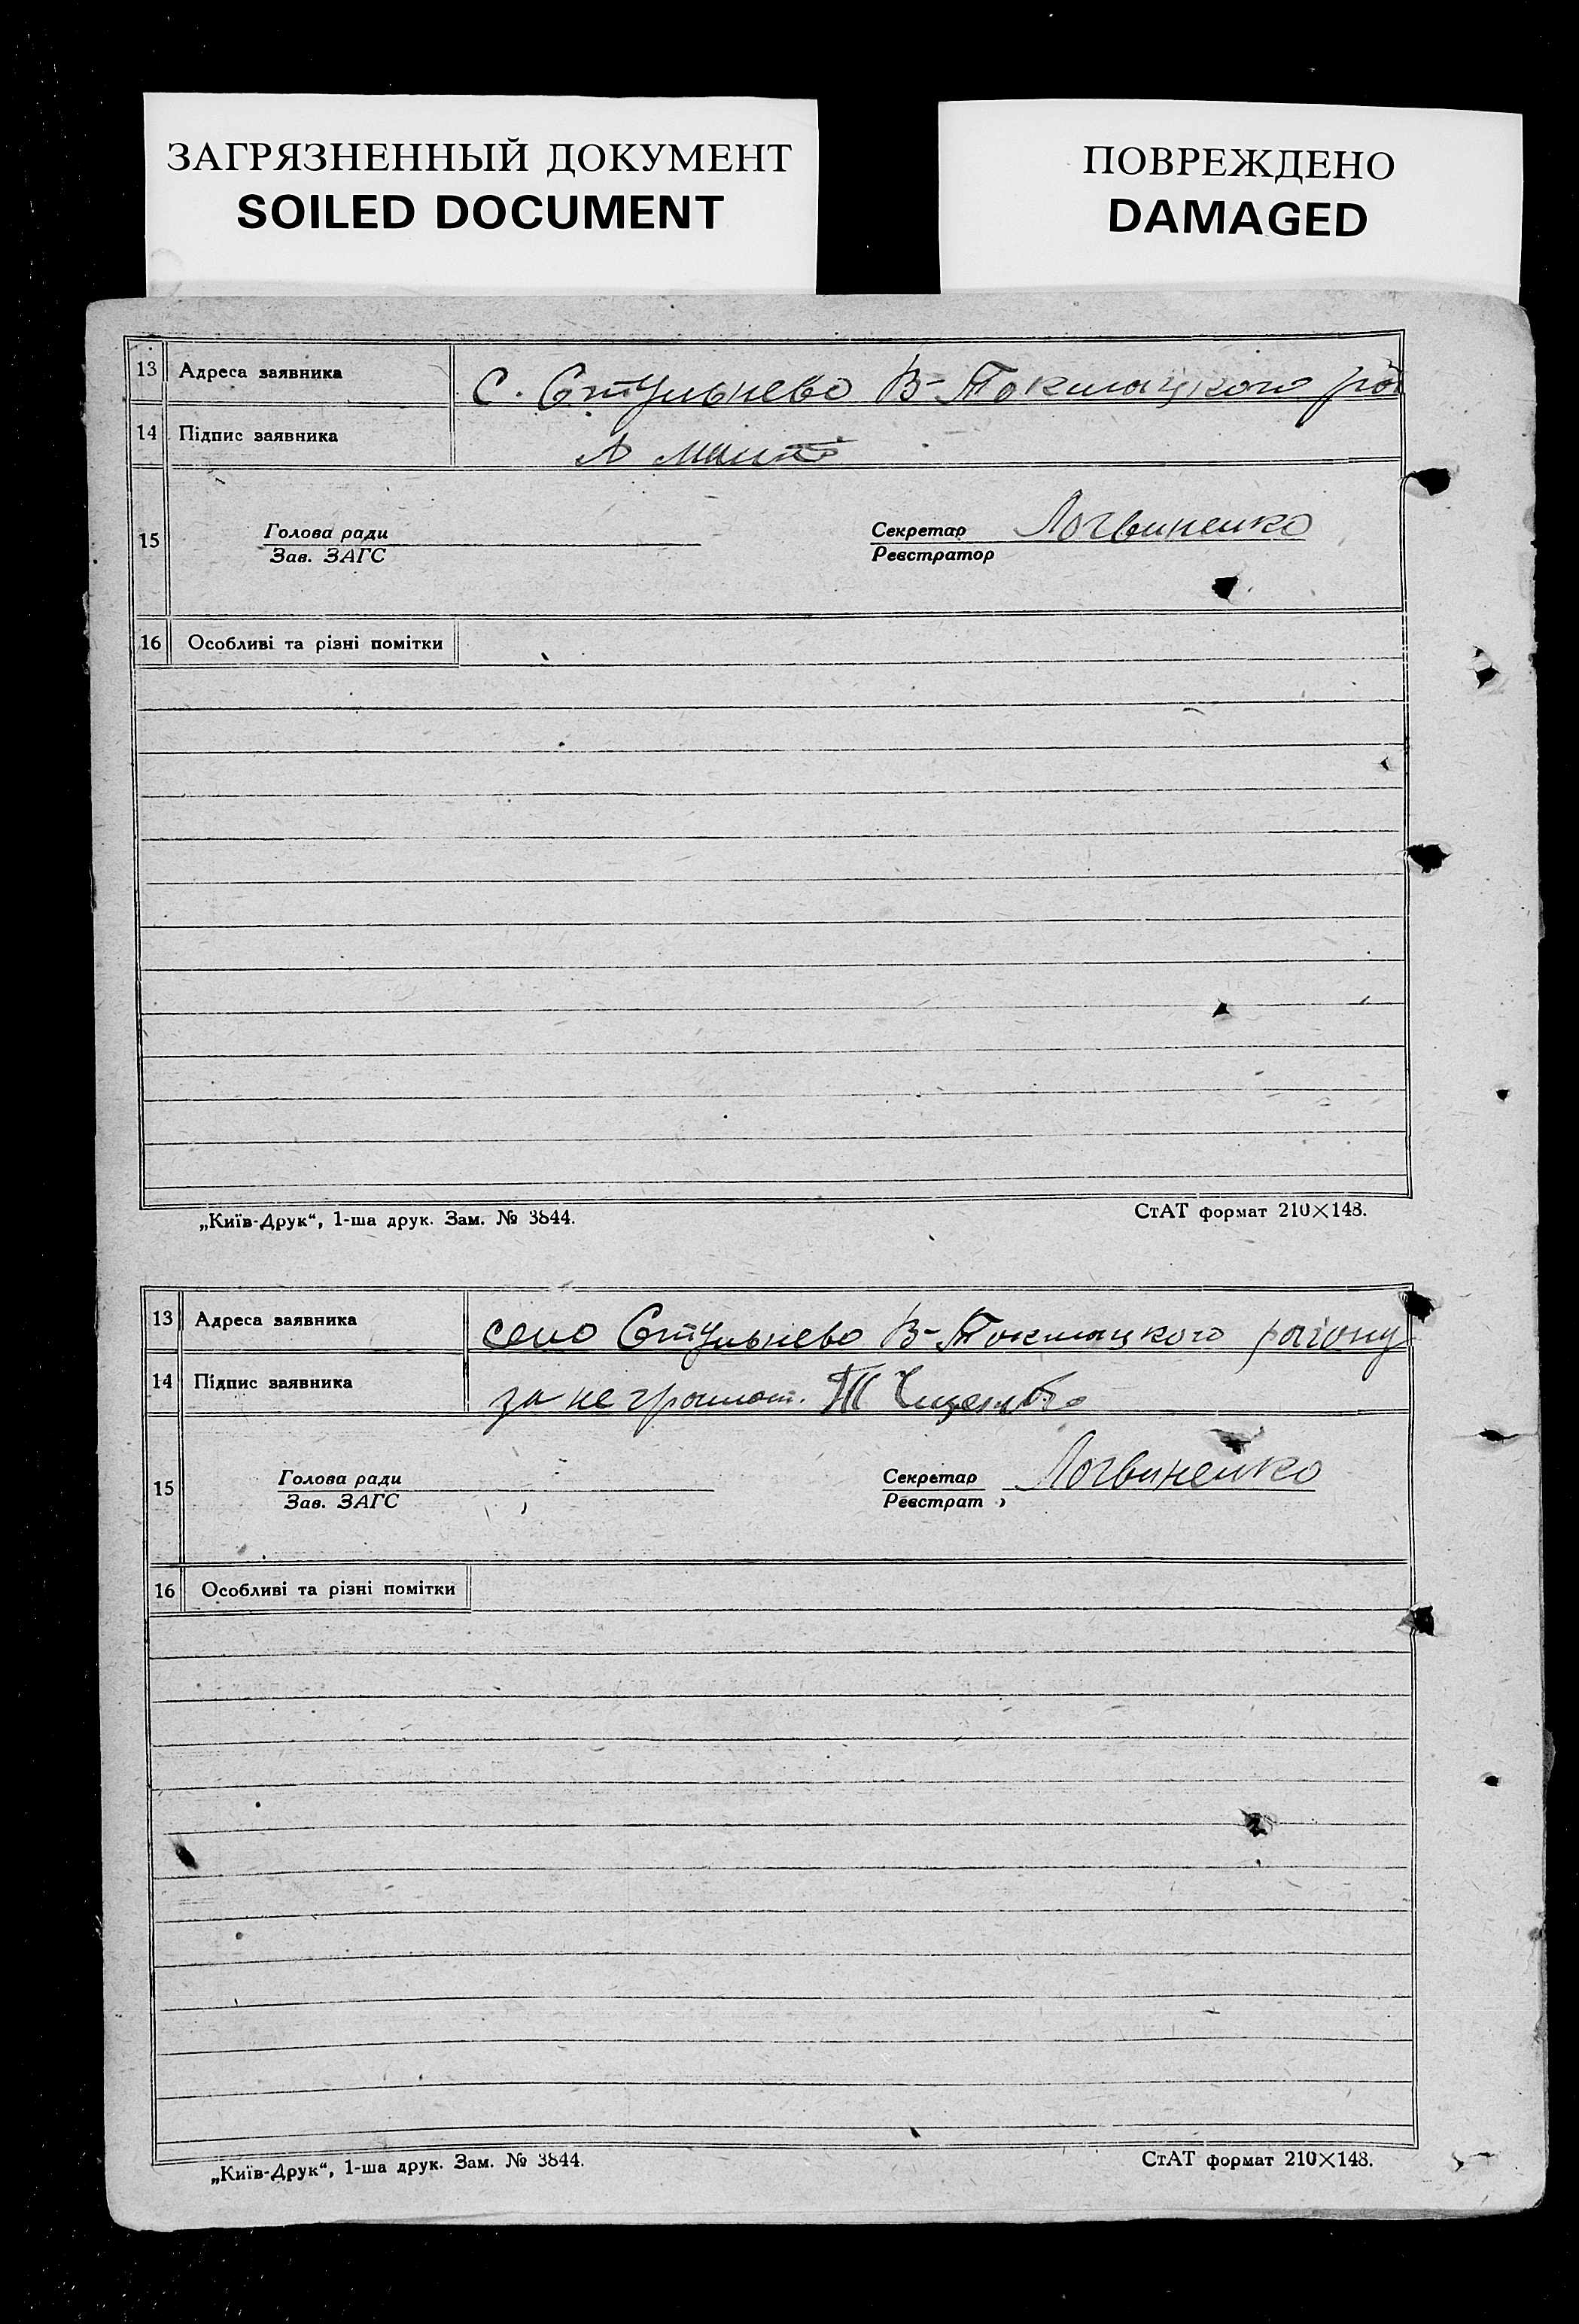 ЗАГРЯЗНЕННЫЙ ДОКУМЕНТ
SOILED DOCUMENT
ПОВРЕЖДЕНО
DAMAGED
13 Адреса заявника с. Стульнево В-Токмацького рай
14 Підпис заявника А
15 Голова ради Секретар Логвиненко
Зав. ЗАГС Реєстратор
16 Особливі та різні помітки
„Київ-Друк“, 1-ша друк. Зам. № 3844.
СтАТ формат 210×148.
13 Адреса заявника село Стульнево В-Токмацкого району
14 Підпис заявника за неграмот.
15 Голова ради Секретар Логвиненко
Зав. ЗАГС Реєстрат
16 Особливі та різні помітки
„Київ-Друк“, 1-ша друк. Зам. № 3844.
СтАТ формат 210×148.